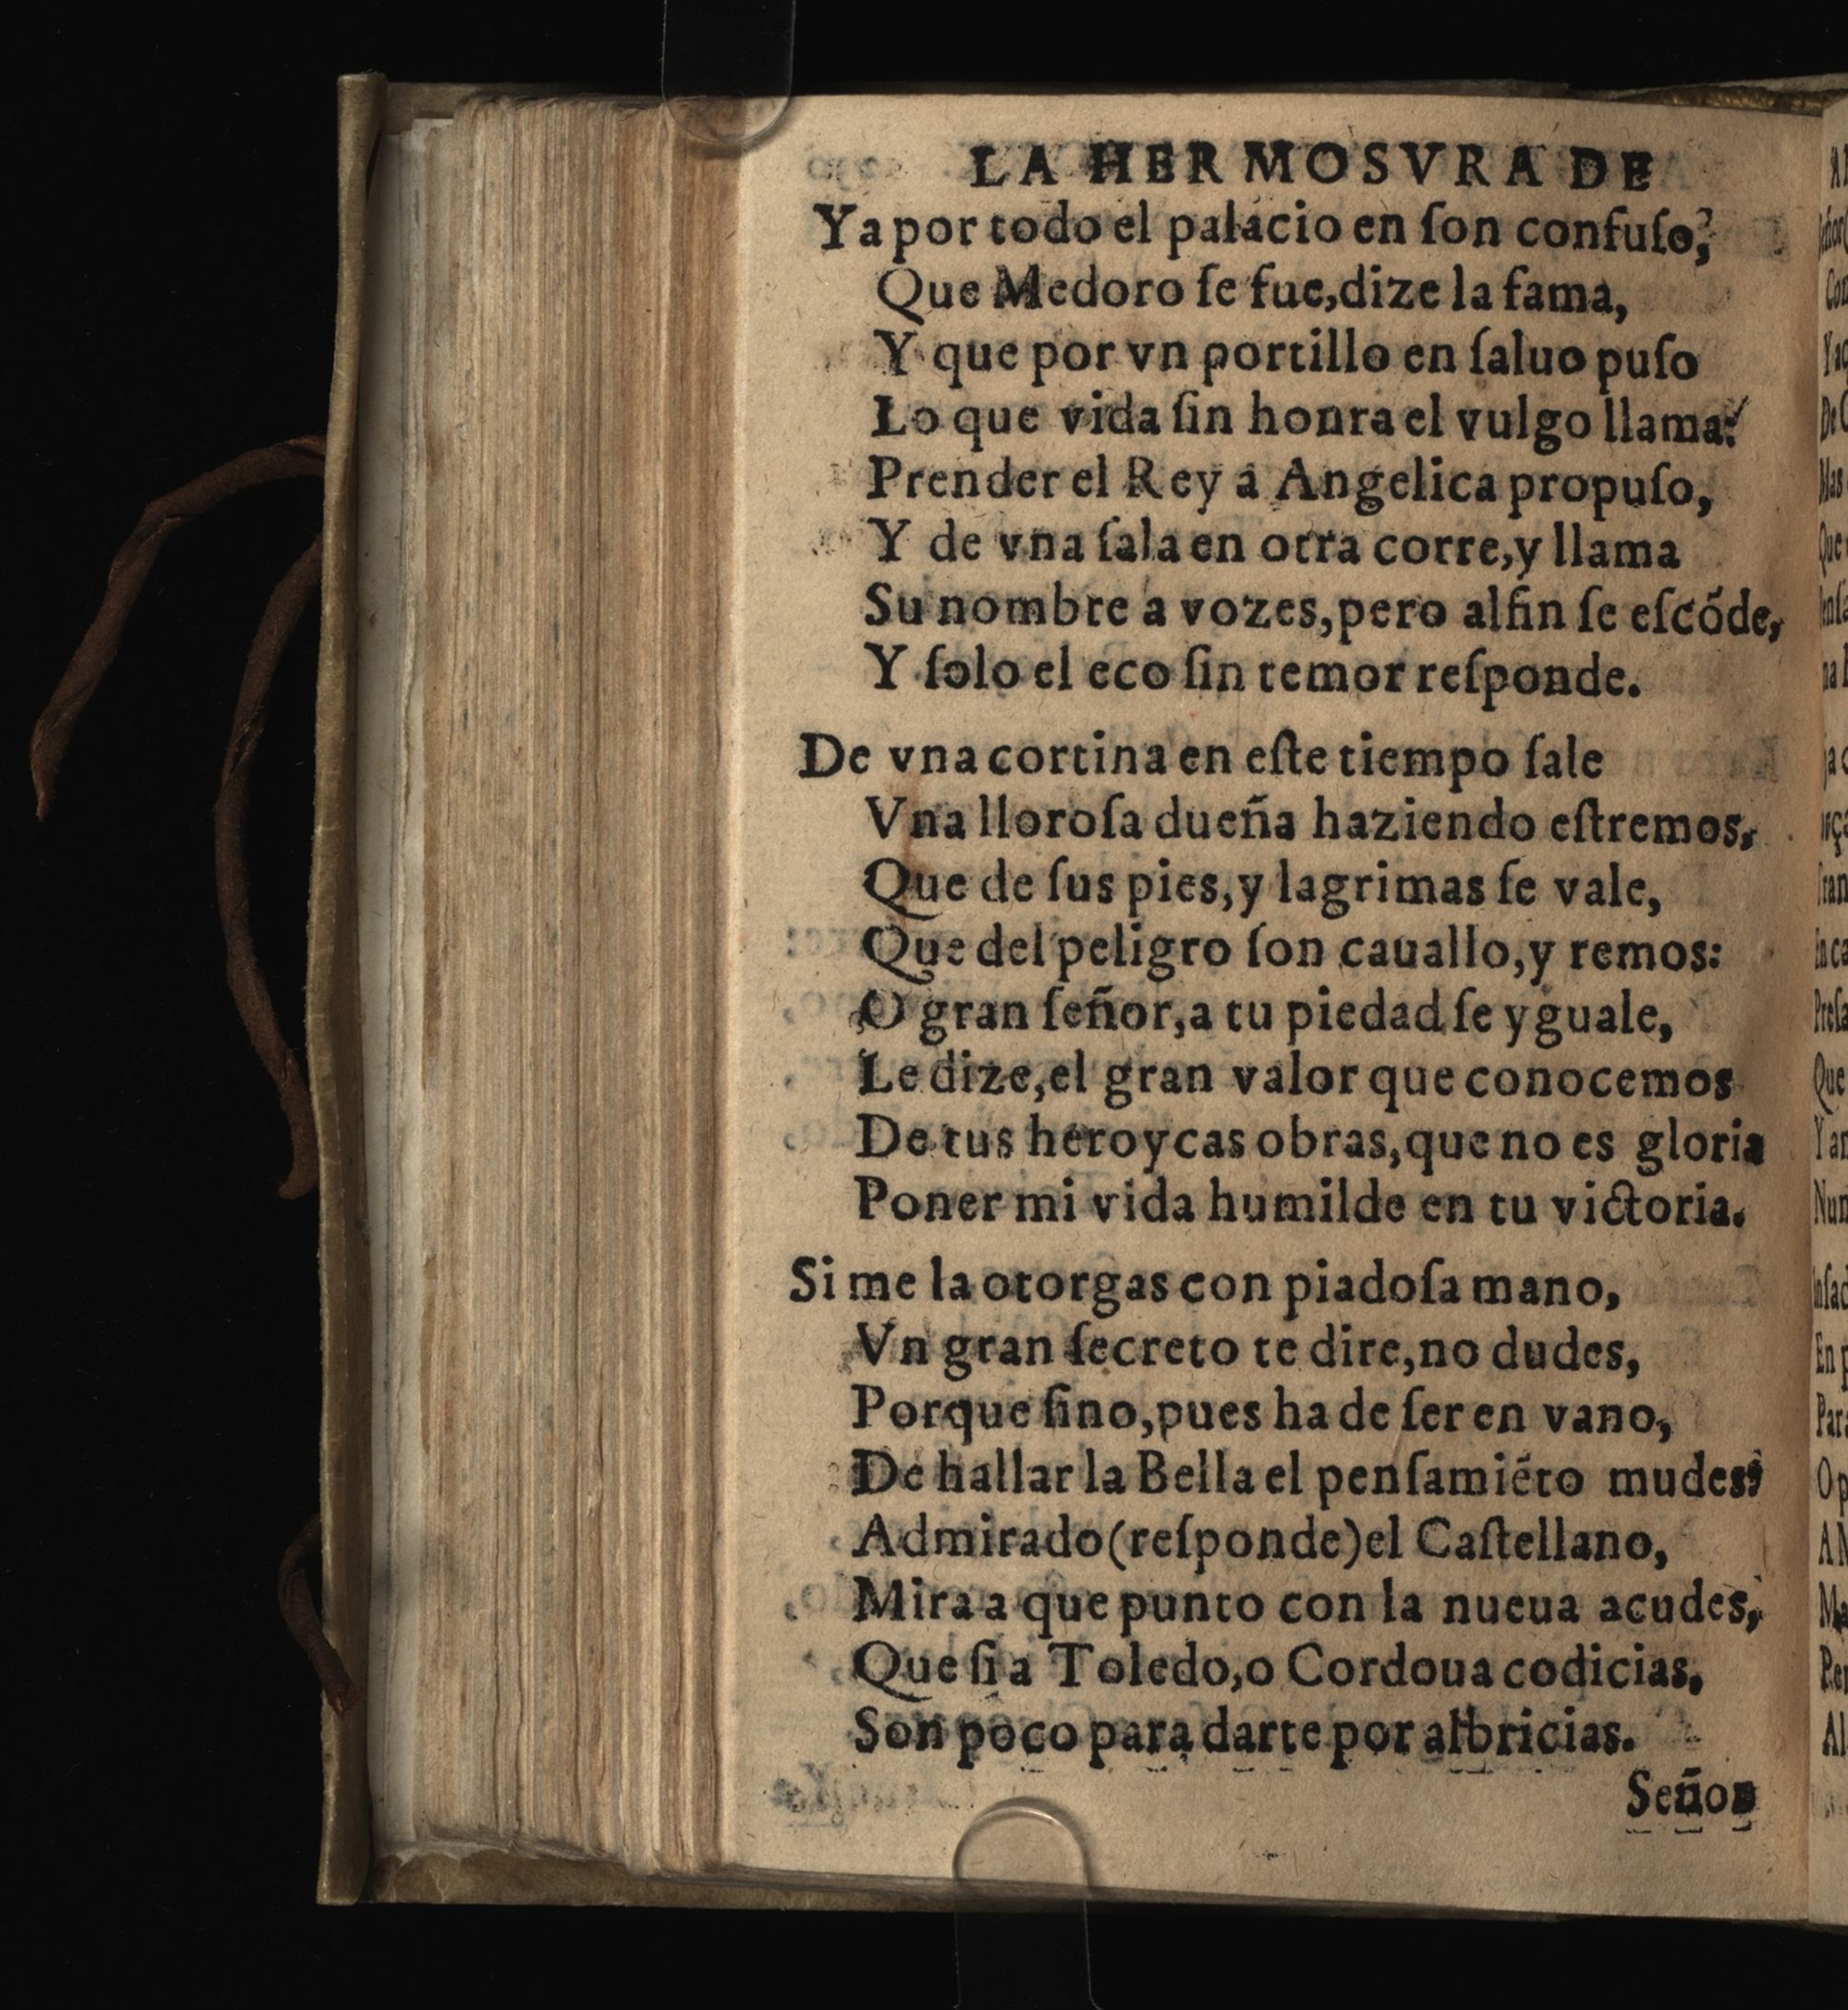 LA HERMOSVRA DE
Ya por todo el palacio en ſon confuſo,
Que Medoro ſe fue,dize la fama,
Y que por vn portillo en ſaluo puſo
Lo que vida ſin honra el vulgo llama:
Prender el Rey a Angelica propuſo,
Y de vna ſala en otra corre,y llama
Su nombre a vozes,pero alfin ſe eſcõde,
Y ſolo el eco ſin temor reſponde.
De vna cortina en eſte tiempo ſale
Vna lloroſa dueña haziendo eſtremos,
Que de ſus pies,y lagrimas ſe vale,
Que del peligro ſon cauallo,y remos:
O gran ſeñor,a tu piedad ſe yguale,
Le dize,el gran valor que conocemos
De tus heroycas obras,que no es gloria
Poner mi vida humilde en tu victoria.
Si me la otorgas con piadoſa mano,
Vn gran ſecreto te dire,no dudes,
Porque ſino,pues ha de ſer en vano,
De hallar la Bella el penſamiẽto mudes:
Admirado(reſponde)el Caſtellano,
Mira a que punto con la nueua acudes,
Que ſi a Toledo,o Cordoua codicias,
Son poco para darte por albricias.
Señor